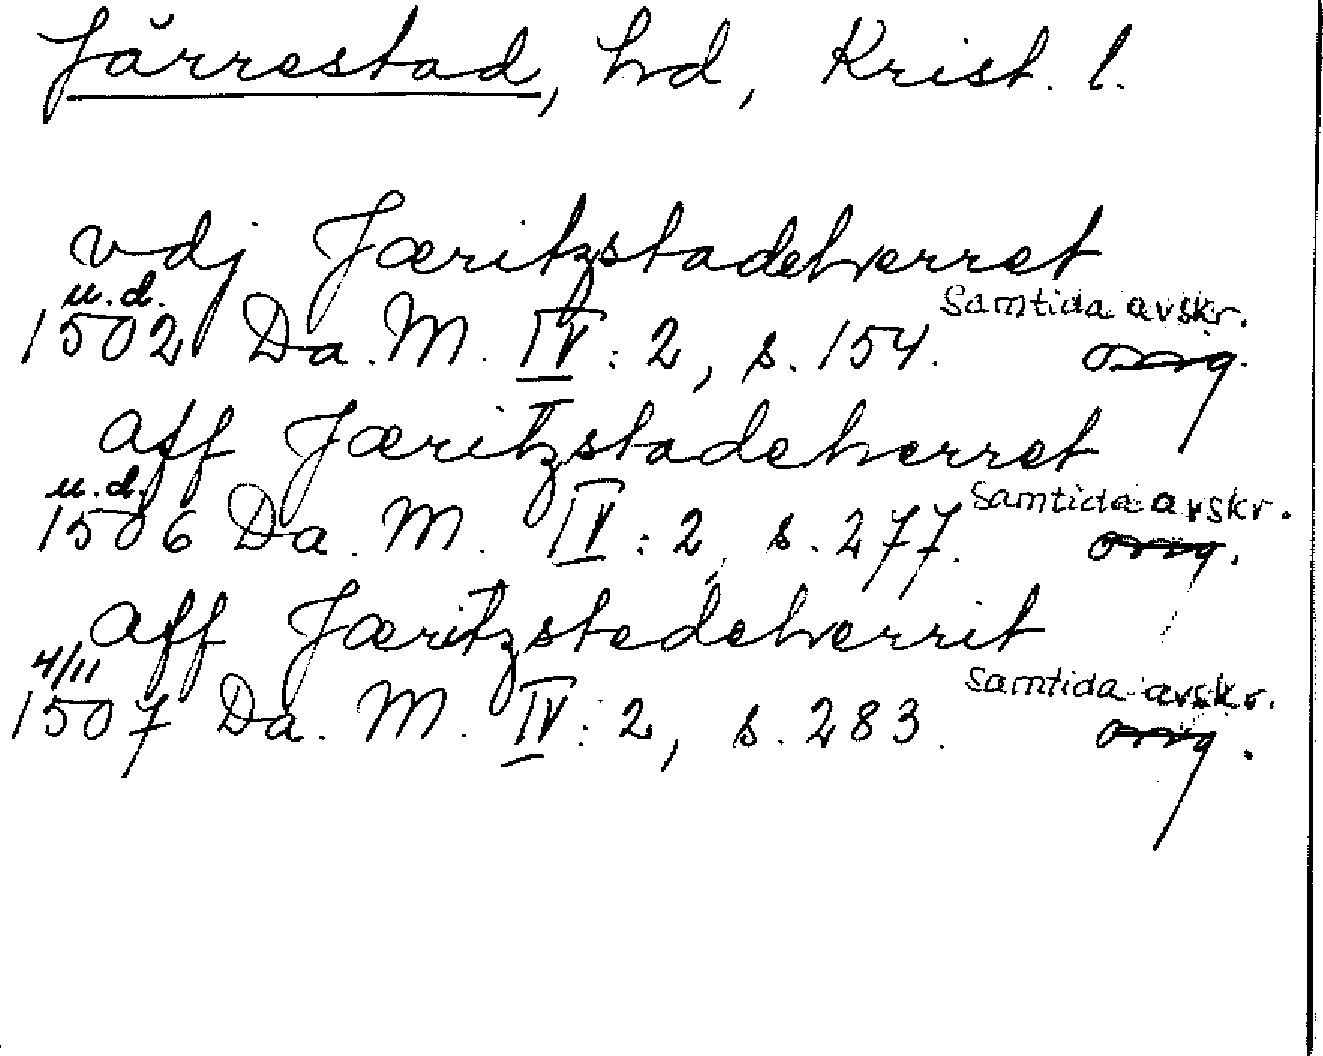 Järrestad, hd, Krist. l.
vdj Jæritzstadehverret
u.d.
1502 Da. M. IV: 2, s. 154. Samtida avskr.
orig.
aff Jæritzstadeherret
u.d.
1506 Da. M. IV: 2, s. 277. Samtida avskr.
orig.
aff Jæritzstedehverrit
4/11
1507 Da. M. IV: 2, s. 283. Samtida avskr.
orig.